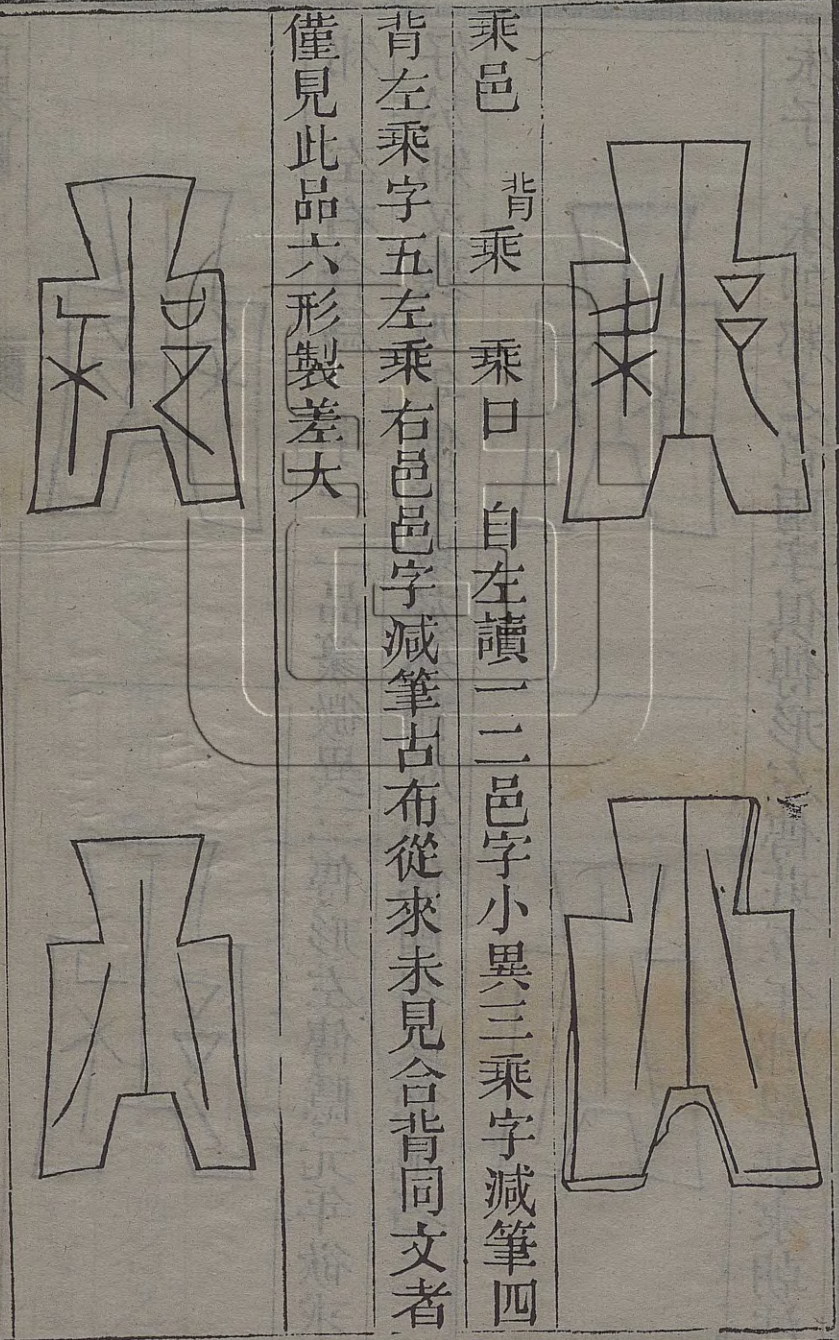 乘邑　背乘　乘口　自左讀一二邑字小異三乘字減筆四
背左乘字五左乘右邑邑字減筆古布從來未見合背同文者
僅見此品六形製差大